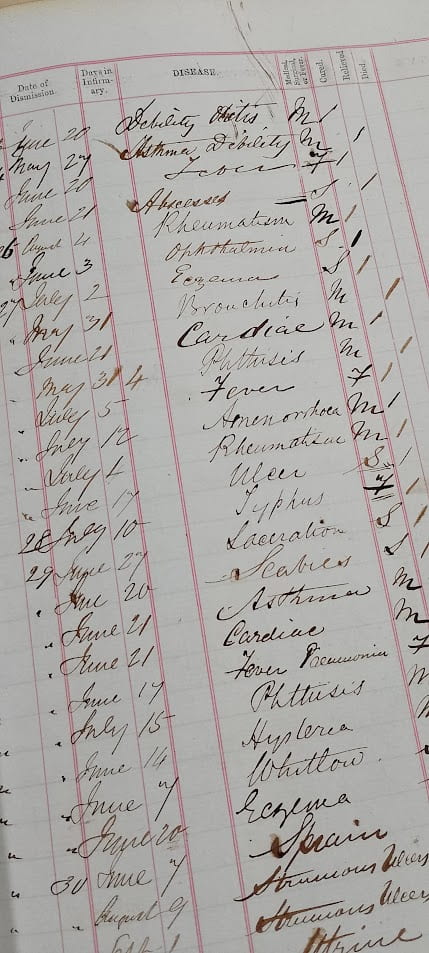 Date of Dismission. Days in Infirmary. DISEASE. Medical, Surgical, or Fever. Cured. Relieved Died.
June 20 Debility M 1
May 27 Asthma Debility M 1
June 20 Fever F 1
June 21 Abscesses S 1
26 August 4 Rheumatism M 1
June 3 Ophthalmia S 1
27 July 2 Eczema S 1
May 31 Bronchitis M 1
June 21 Cardiac M 1
May 31 4 Phthisis M 1
July 5 Fever F 1
July 12 Amenorrhoea M 1
July 4 Rheumatism M 1
June 17 Ulcer S 1
28 July 10 Typhus F 1
29 June 27 Laceration S 1
June 20 Scabies S 1
June 21 Asthma M
June 21 Cardiac M
June 17 Fever Pneumonia F
July 15 Phthisis M
June 14 Hysteria
June 7 Whitlow
June 20 Eczema
30 June 7 Sprain
August 9 Strumous Ulcers
Strumous Ulcers